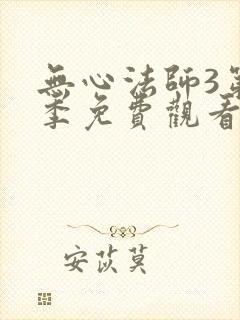 無心法師3第
季免費觀看
安苡莫